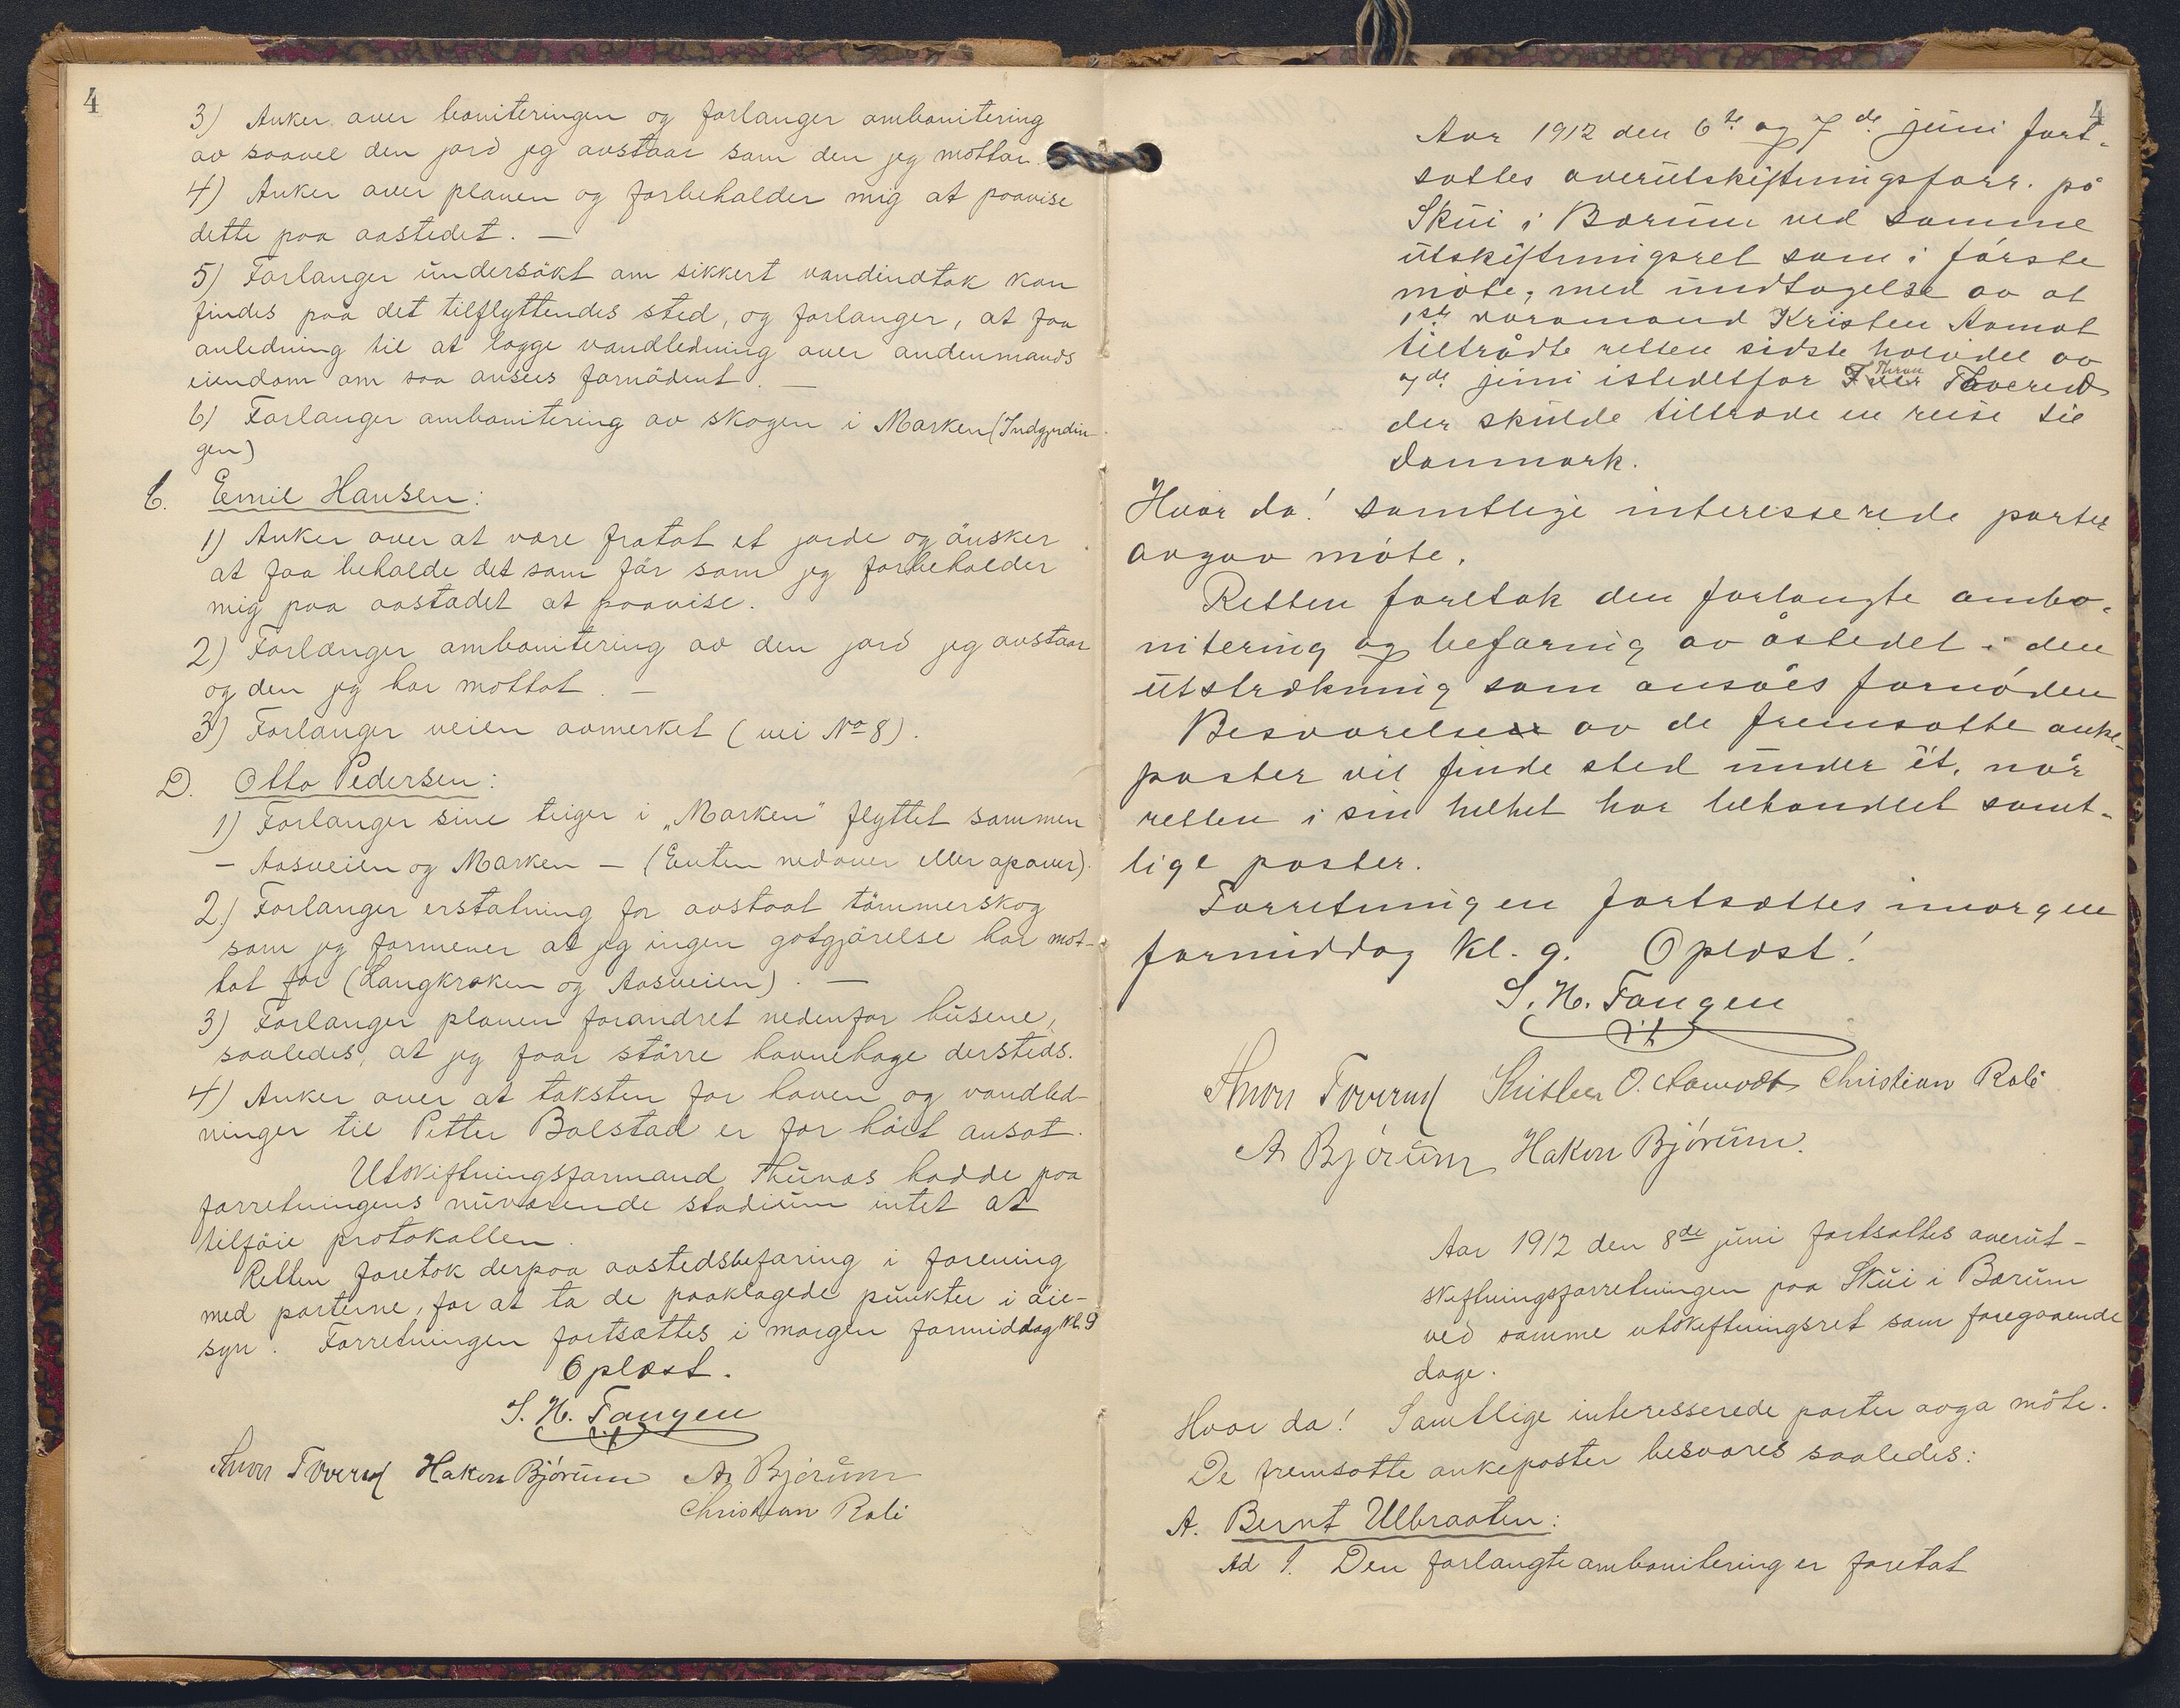 4
3) Anker over boniteringen og forlanger ombonitering
av saavel den jord jeg avstaar som den jeg mottar.
4) Anker over planen og forbeholder mig at paavise
dette paa aastedet. —
5) Forlanger undersökt om sikkert vandindtak kan
findes paa det tilflyttendes sted, og forlanger, at faa
anledning til at lægge vandledning over andenmands
eiendom om saa ansees fornödent. —
6) Forlanger ombonitering av skogen i Marken (Indgjerdin-
gen)
C. Emil Hansen:
1) Anker over at være fratat et jorde og önsker
at faa beholde det som för som jeg forbeholder
mig paa aastedet at paavise.
2) Forlanger ombonitering av den jord jeg avstaar
og den jeg har mottat. —
3) Forlanger veien avmerket (vei No 8).
D. Otto Pedersen:
1) Forlanger sine teiger i „Marken" flyttet sammen
— Aasveien og Marken — (Enten nedover eller opover).
2) Forlanger erstatning for avstaat tömmerskog
som jeg formener at jeg ingen gotgjörelse har mot-
tat for (Langkroken og Aasveien). —
3) Forlanger planen forandret nedenfor husene,
saaledes, at jeg faar större havnehage dersteds.
4) Anker over at taksten for haven og vandled-
ninger til Petter Bolstad er for höit ansat.
Utskiftningsformand Thunæs hadde paa
forretningens nuværende stadium intet at
tilföie protokollen.
Retten foretok derpaa aastedsbefaring i forening
med parterne, for at ta de paaklagede punkter i öie-
syn. Forretningen fortsættes i morgen formiddag kl. 9
Oplæst.
S. H. Tangen
Thron Tverud Hakon Bjórum A. Bjórum
Christian Roli
4
Aar 1912 den 6te og 7de juni fort-
sattes overutskiftningsforr. på
Skui i Bærum ved samme
utskiftningsret som i fórste
móte, med undtagelse av at
1ste varamand Kristen Aamot
tiltrådte retten sidste halvdel av
7de juni istedetfor Thron Tverud
der skulde tiltræde en reise til
Danmark.
Hvor da! samtlige interesserede parter
avgav móte.
Retten foretok den forlangte ombo-
nitering og befaring av åstedet i den
utstrækning som ansåes fornóden
Besvarelsen av de fremsatte anke-
poster vil finde sted under ét, når
retten i sin helhet har behandlet samt-
lige poster.
Forretningen fortsættes imorgen
formiddag kl. 9. Oplæst!
S. H. Tangen
Thron Tverud Kristen O. Aamodt Christian Roli
A. Bjórum Hakon Bjórum.
Aar 1912 den 8de juni fortsattes overut-
skiftningsforretningen paa Skui i Bærum
ved samme utskiftningsret som foregaaende
dage.
Hvor da! Samtlige interesserede parter avga möte.
De fremsatte ankeposter besvares saaledes:
A. Bernt Ulbraaten:
Ad 1. Den forlangte ombonitering er foretat